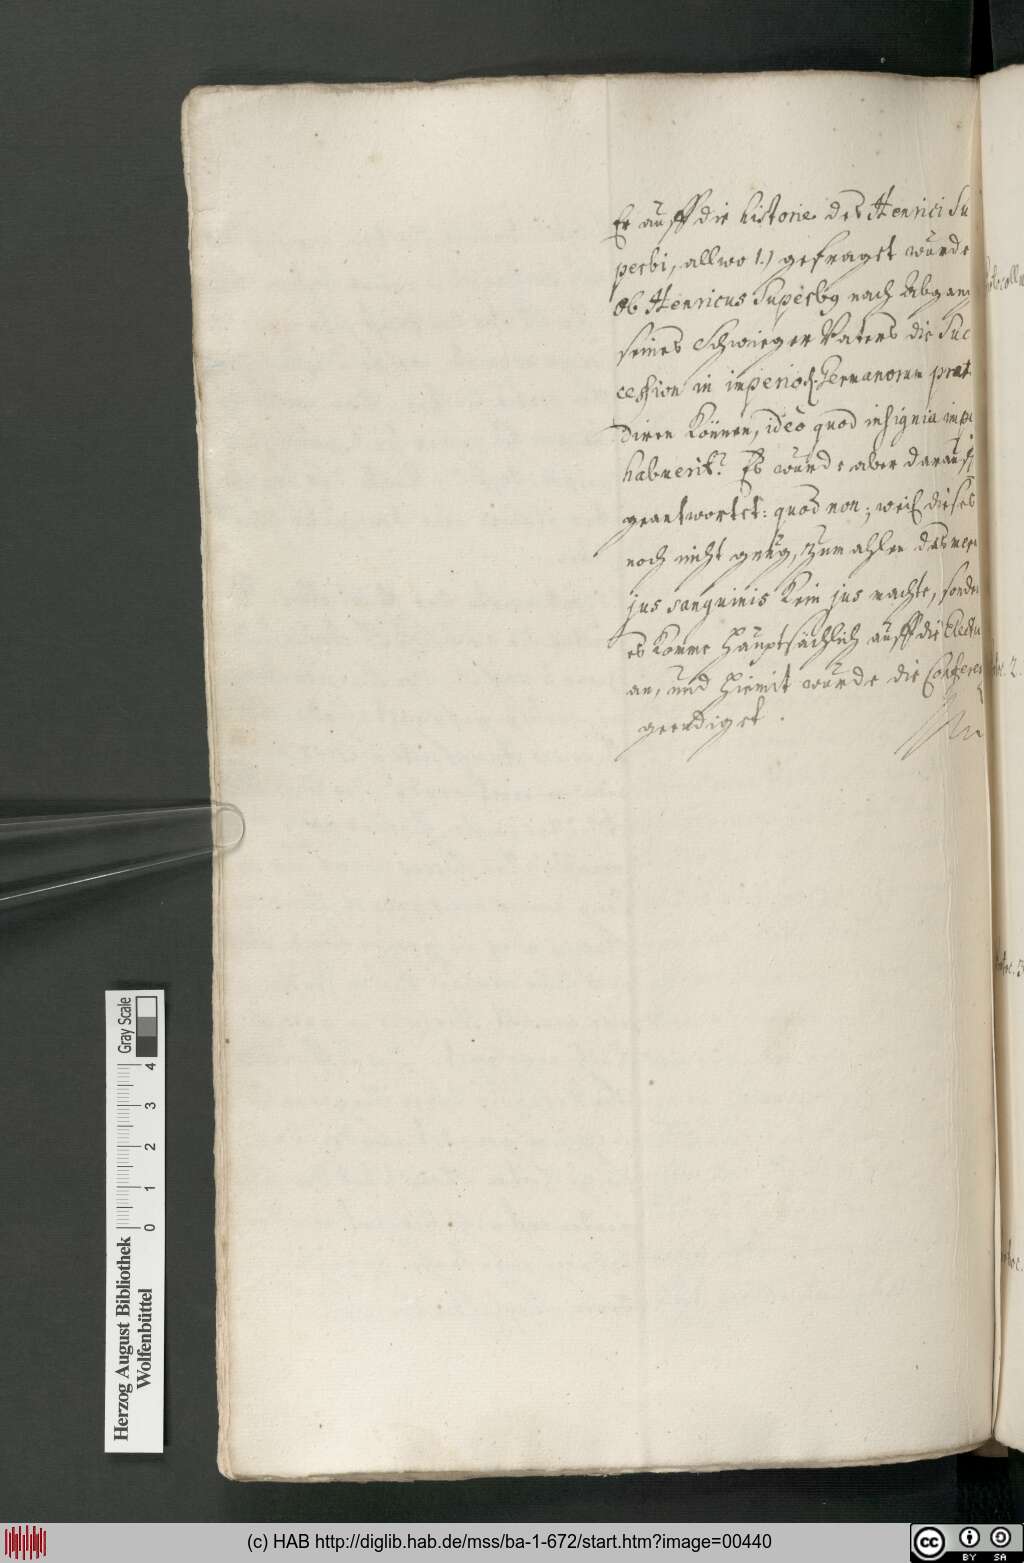 Er auff die historie des Henrici Su
perbi, allwo 1.) gefraget wurde
ob Henricus Superbg nach Abgan
seines Schwieger Vaters die Suc
cession in imperio Germanorum præt
diren können, ideò quod insignia imp
habuerit? Es wurde aber darauff
geantwortet: quod non; weil dieses
noch nicht gnug, zumahlen das
jus sanguinis kein jus machte, sonder
es komme hauptsächlich auff die Electi
an, und hiemit wurde die Conferen
geendiget.
Protocoll
oc. 2.
oc. 3
Gray Scale
0 1 2 3 4
Herzog August Bibliothek
Wolfenbüttel
(c) HAB http://diglib.hab.de/mss/ba-1-672/start.htm?image=00440
cc BY SA